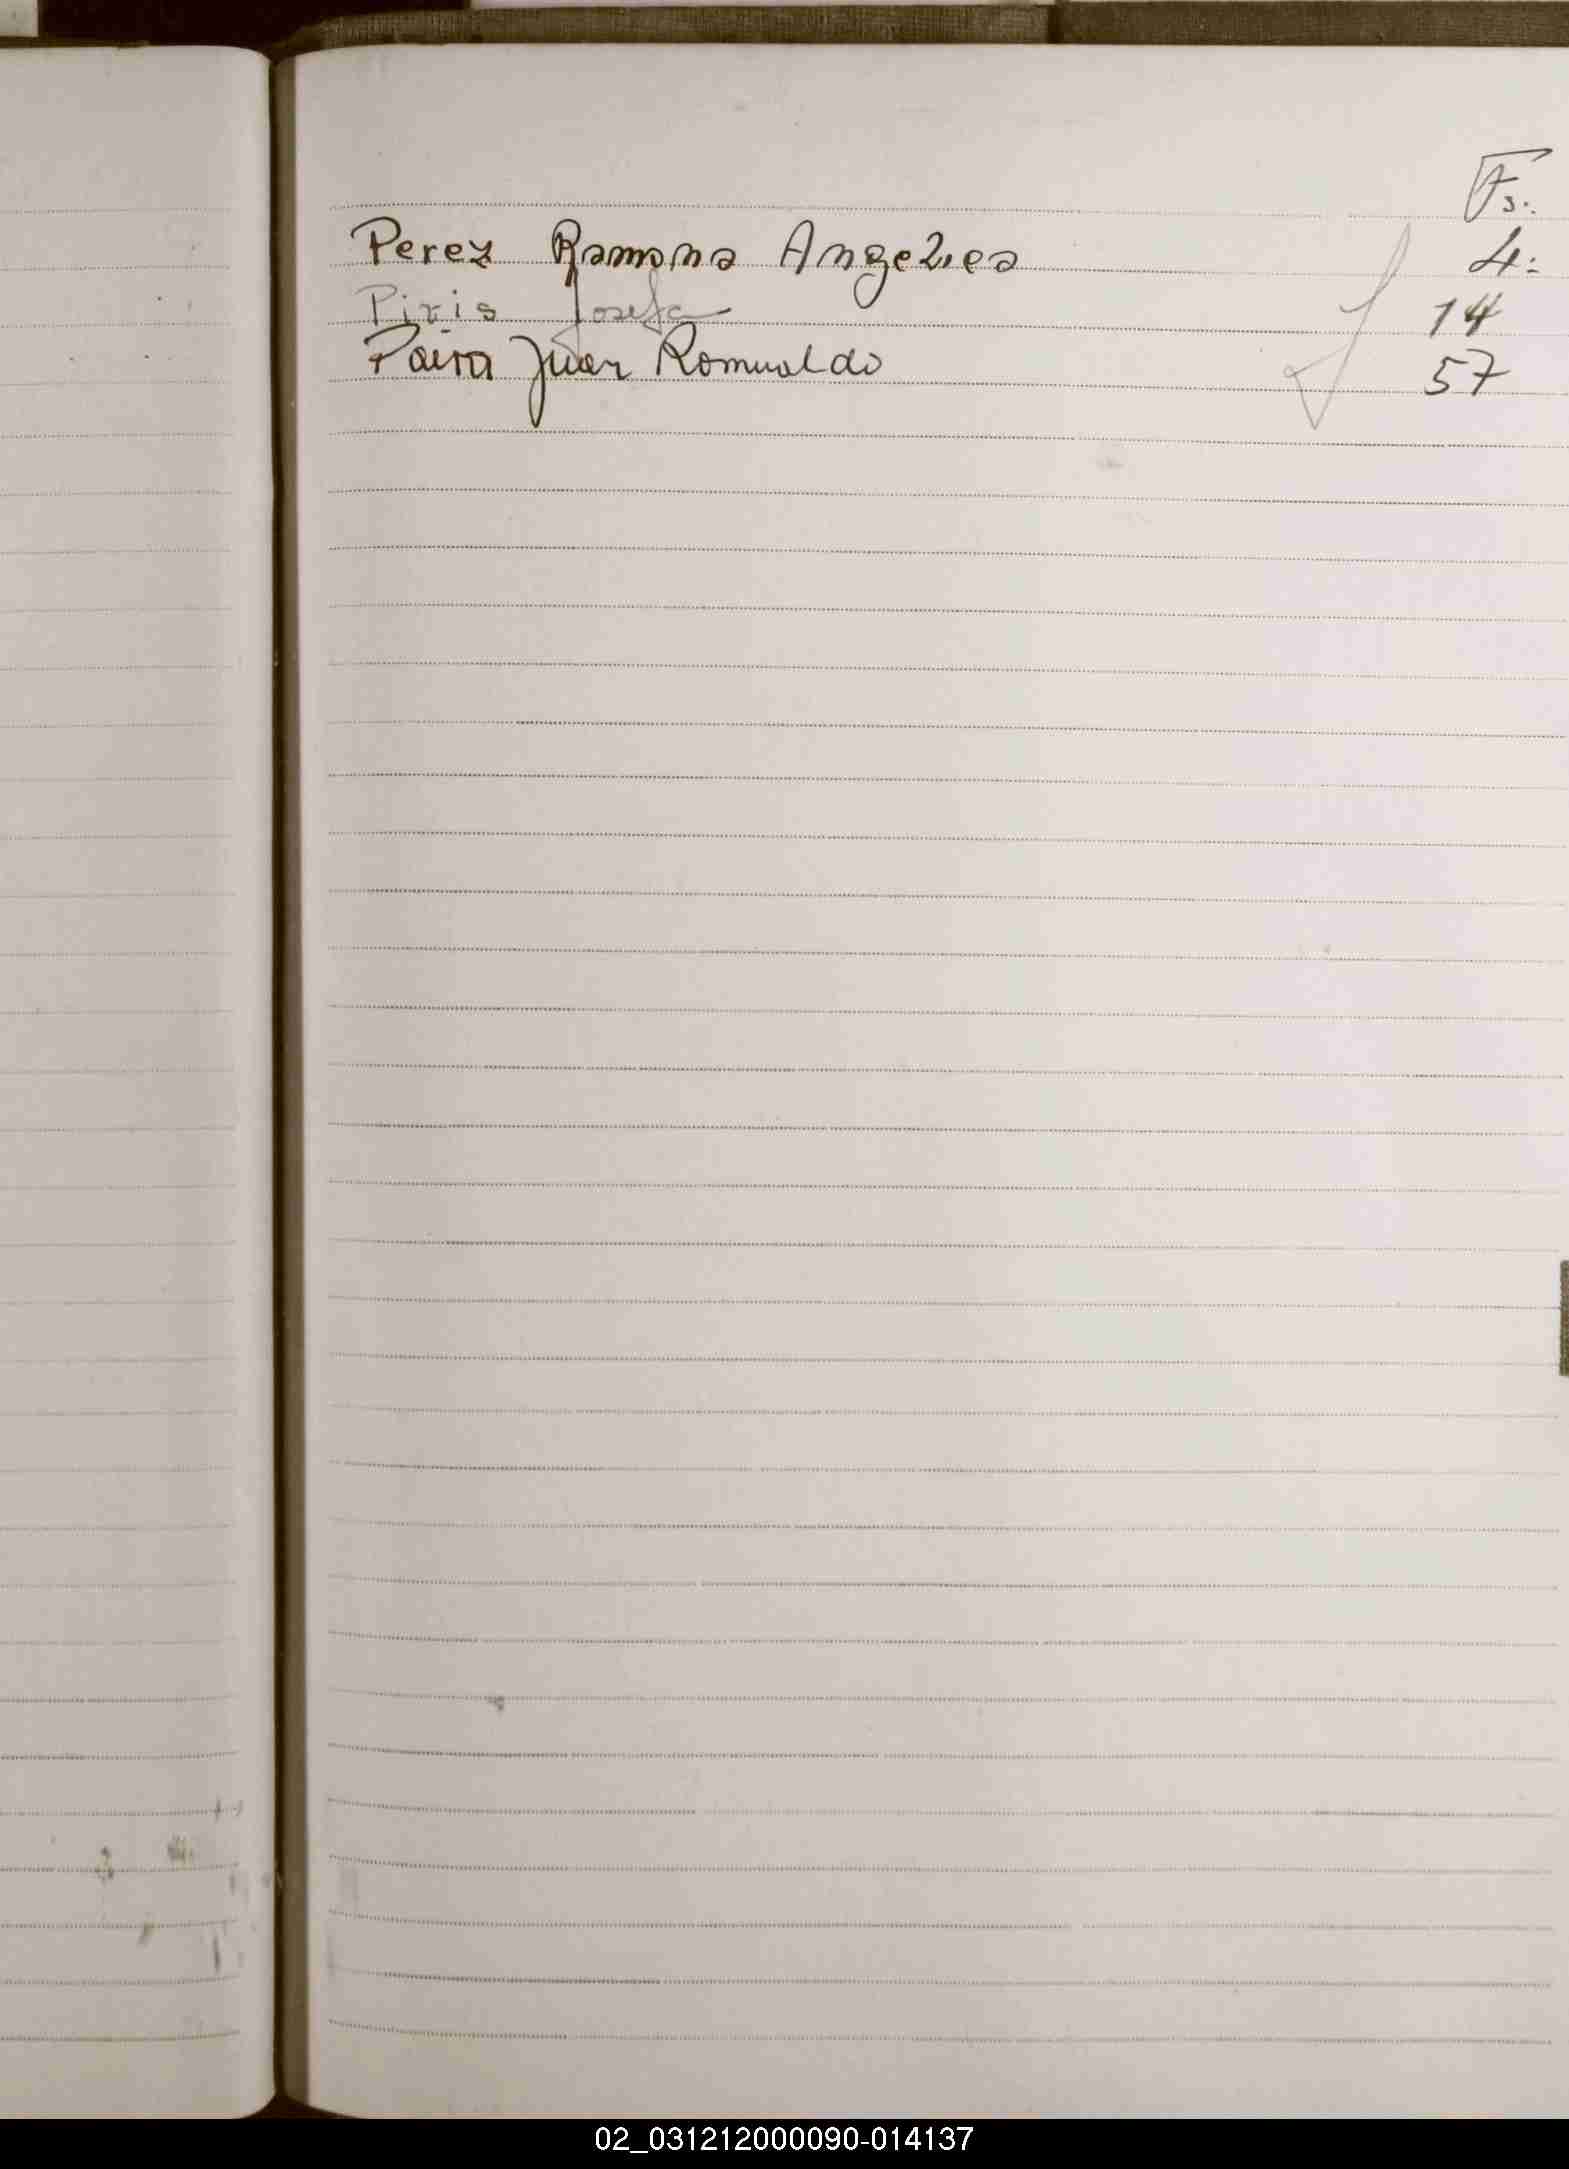 Fs.
Perez Ramona Angeles 4.
Piris Josefa 14
Juan Romualdo 57
02_031212000090-014137